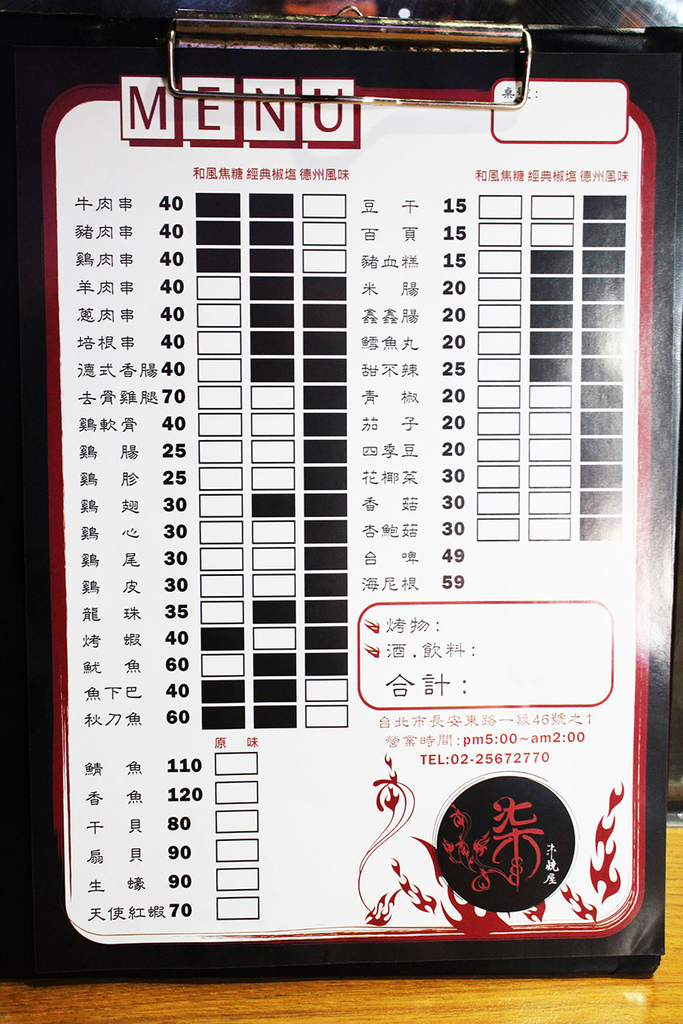 MENU
桌號:
和風焦糖 經典椒塩 德州風味
牛肉串 40
豬肉串 40
鷄肉串 40
羊肉串 40
蔥肉串 40
培根串 40
德式香腸 40
去骨雞腿 70
鷄軟骨 40
鷄腸 25
鷄胗 25
鷄翅 30
鷄心 30
鷄尾 30
鷄皮 30
龍珠 35
烤蝦 40
魷魚 60
魚下巴 40
秋刀魚 60
原味
鯖魚 110
香魚 120
干貝 80
扇貝 90
生蠔 90
天使紅蝦 70
和風焦糖 經典椒塩 德州風味
豆干 15
百頁 15
豬血糕 15
米腸 20
鑫鑫腸 20
鱈魚丸 20
甜不辣 25
青椒 20
茄子 20
四季豆 20
花椰菜 30
香菇 30
杏鮑菇 30
台啤 49
海尼根 59
烤物:
酒.飲料:
合計:
台北市長安東路一段46號之1
營業時間:pm5:00~am2:00
TEL:02-25672770
柒
串燒屋